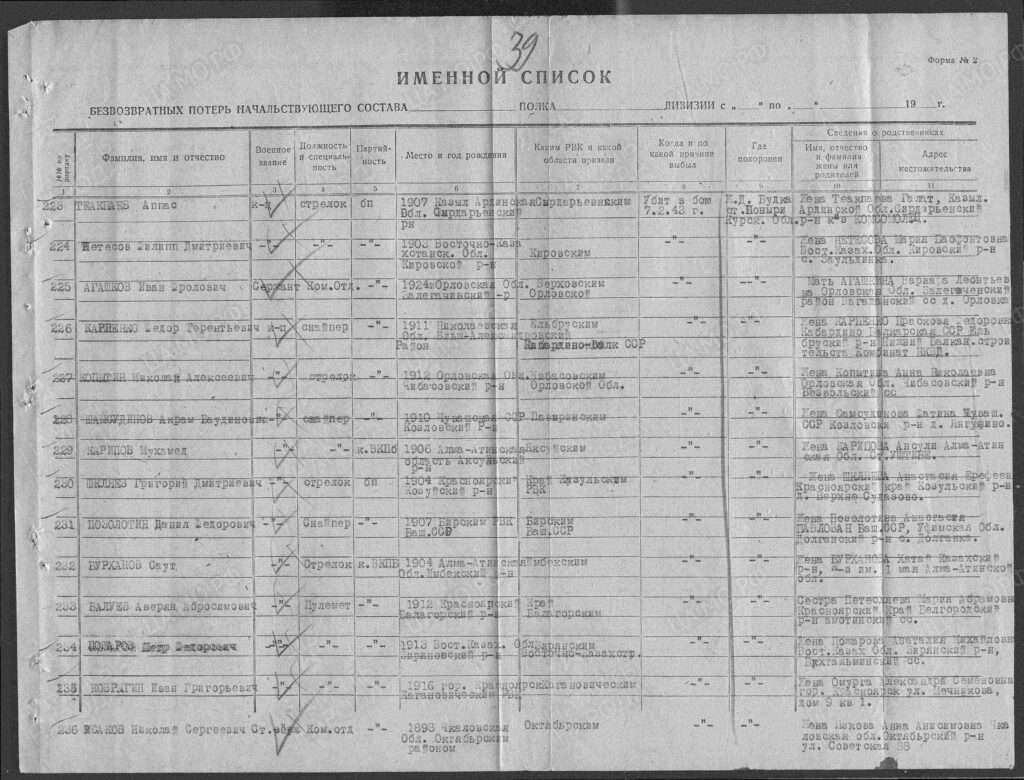 39
Форма № 2
ИМЕННОЙ СПИСОК
БЕЗВОЗВРАТНЫХ ПОТЕРЬ НАЧАЛЬСТВУЮЩЕГО СОСТАВА ПОЛКА ДИВИЗИИ с „ “ по „ “ 19 г.
№№ по порядку
Фамилия, имя и отчество
Военное звание
Должность и специаль-ность
Партий-ность
Место и год рождения
Каким РВК и какой области призван
Когда и по какой причине выбыл
Где похоронен
Сведения о родственниках
Имя, отчество и фамилия жены или родителей
Адрес местожительства
1 2 3 4 5 6 7 8 9 10 11
223 ТЕАКПАЕВ Аппас к-ц стрелок бп 1907 Казыл Ардинская Сирдарьевняким Убит в бою Ж.Д. Будка Жена Теакпаева Галат, Казыл.
Обл. Сырдарьенский 7.2.43 г. ст.Поныри Ардинской Обл.Сирдарьенский
рн Курск. Обл. р-н к-з КОМСОМОЛЕЦ.
224 Нетесов Филипп Дмитриевич -"- -"- -"- 1903 Восточно-Каза Кировским -"- -"- Жена НЕТЕСОВА Мария
хстанск. Обл. Вост.Казах.Обл. Кировский р-н
Кировской р-н с.
225 АГАШКОВ Иван Фролович Сержант Ком.Отд. -"- 1924 Орловская Обл. Верховским -"- -"- Мать АГАШКИНА Варвара
Залегачинский -р Орловской на Орловская Обл. Залегаченский
район сс д. Орловка
226 КАРПЕНКО Федор Терентьевич к-ц снайпер -"- 1911 Николаевская Эльбруским -"- -"- Жена КАРПЕНКО Прасковя Федоровна
Обл. Кабардино Балкарская ССР Ель
Район Кабардино-Болк ССР бруский р-н Нижний Балкан.строи
тельста Комбинат НКВД.
227 КОПЫТИН Николай Алексеевич -"- стрелок -"- 1912 Орловская Обл. Чибасовским -"- -"- Жена Копытина Анна Николаевна
Чибасовский р-н Орловской Обл. Орловская Обл. Чибасовский р-н
сс
228 ШАМСУДИНОВ Акрам Баудинович -"- снайпер -"- 1910 Чувашская ССР -"- -"- Жена Самсудинова Фатина Чуваш.
Козловский Р-н ССР Козловски р-н д.
229 КАРИПОВ Мухамед -"- -"- к.ВКПб 1906 Алма-Атинская Аксуйским -"- -"- Жена КАРИПОВА Алма-Атин
область Аксуйский ская Обл.
р-н
230 ШКЛЯЕВ Григорий Дмитриевич -"- стрелок бп 1904 Красноярский Край Казульским -"- -"- Жена ШКЛЯЕВА Анастасия
Козуйский р-н РВК Красноярский край Козульский р-н
д. Верхне
231 ПОЗОЛОТИН Данил Федорович -"- Снайпер -"- 1907 Бирским РВК Бирским -"- -"- Жена Позолотина Анастасия
Баш.ССР Баш.ССР Баш.ССР, Уфимская Обл.
Долганский р-н с. Долганка.
232 БУРХАНОВ Саут -"- Стрелок к.ВКПБ 1904 Алма-Атинская -"- -"- Жена БУРХАНОВА Хатай Казахский
р-н р-н, к-з им. 1 мая Алма-Атинско
обл.
233 БАЛУЕВ Аверян Абросимович -"- Пулемет -"- 1912 Красноярский Край -"- -"- Сестра Мария Абрамовна
Балагорский р-н Балагорским Красноярский Край Белгородский
р-н сс.
234 ПОЖАРОВ Петр Федорович -"- -"- -"- 1913 Вост.Казах. Обл. Зирянским -"- -"- Жена Пожарова Михайловна
Зиряновский р-н Восточно-Казахстр. Вост.Казах Обл. Зирянский р-н,
Бухтальминский сс.
235 КОВРАГИН Иван Григорьевич -"- -"- -"- 1916 гор. Красноярск Кагановическим -"- -"- Жена Омурга Александра Семеновна
Кагановическим РВК гор. Красноярск ул. Мечникова,
дом 9 кв 1.
236 ИСАКОВ Николай Сергеевич Ст. Ком.отд -"- 1898 Чкаловская Октябрьским -"- -"- Жена Анна Анисимовна Чка
Обл. Октябрьским ловская обл.Октябрьский р-н
районом ул. Советская 88